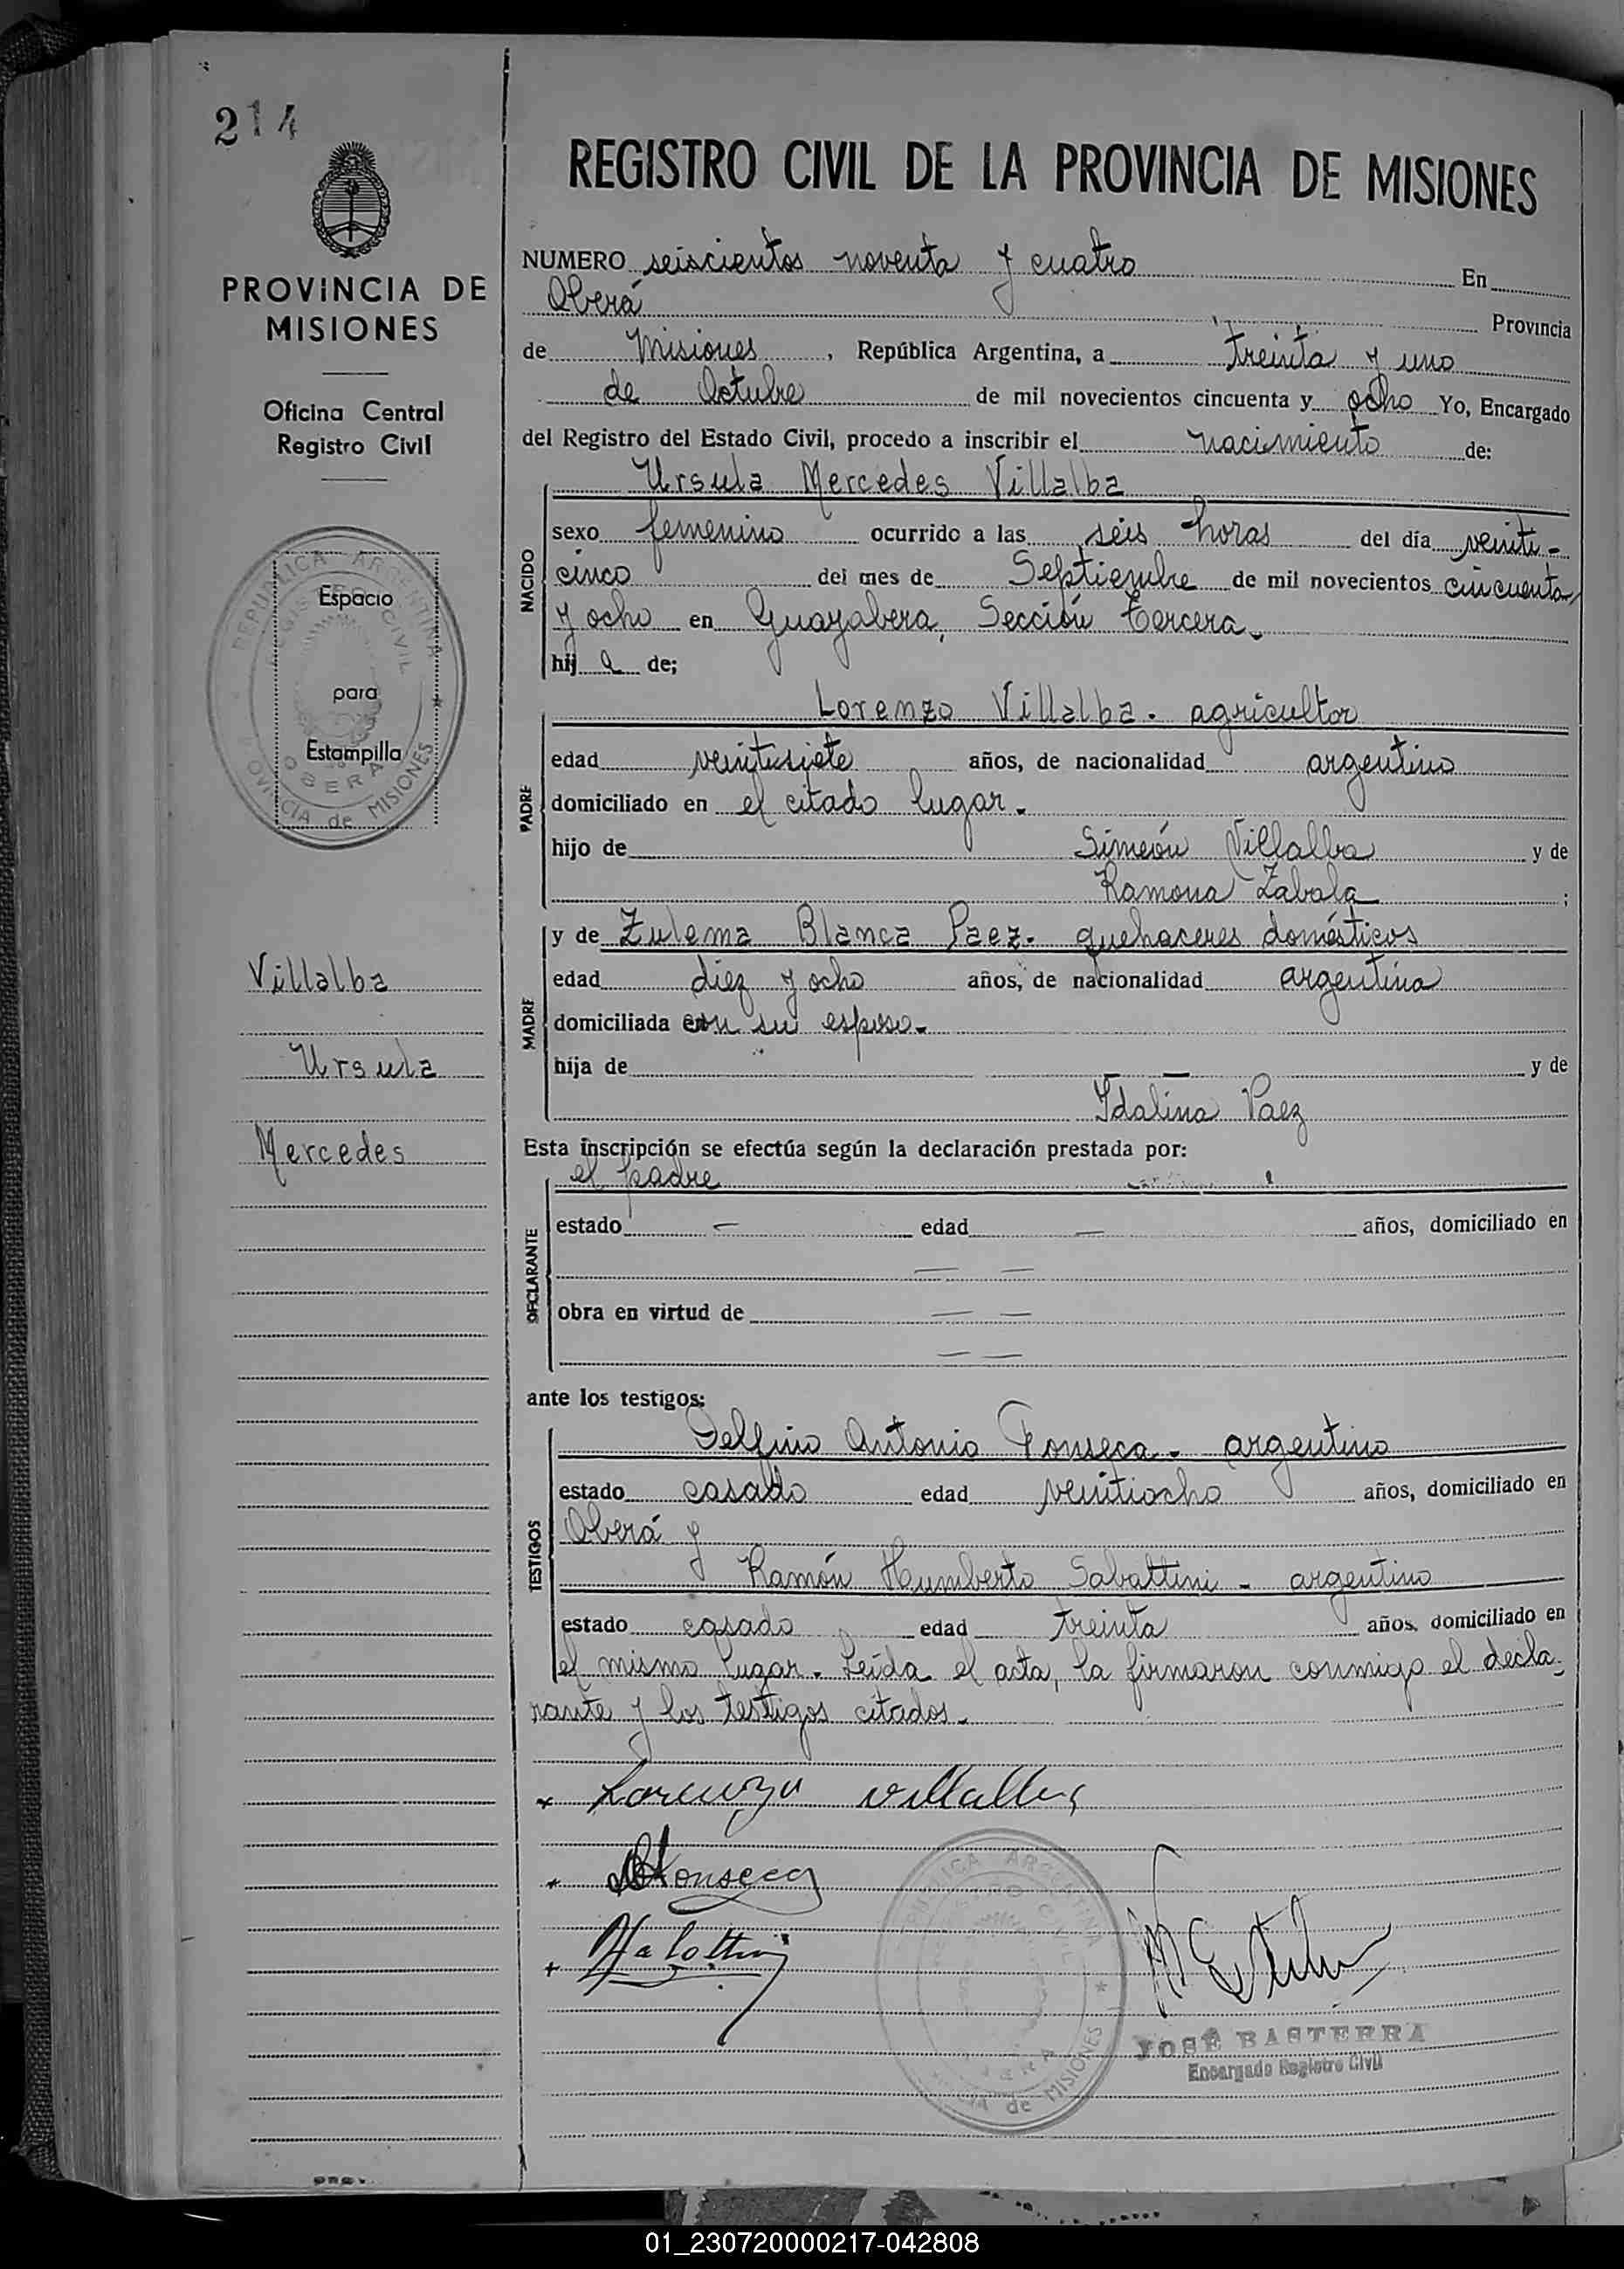 214
PROVINCIA DE
MISIONES
Oficina Central
Registro Civil
REPUBLICA ARGENTINA
REGISTRO CIVIL
Espacio
para
Estampilla
OBERA
PROVINCIA de MISIONES
Villalba
Ursula
Mercedes
REGISTRO CIVIL DE LA PROVINCIA DE MISIONES
NUMERO seiscientos noventa y cuatro En
Oberá Provincia
de Misiones, República Argentina, a treinta y uno
de Octubre de mil novecientos cincuenta y ocho Yo, Encargado
del Registro del Estado Civil, procedo a inscribir el nacimiento de:
NACIDO
Ursula Mercedes Villalba
sexo femenino ocurrido a las seis horas del día veinti-
cinco del mes de Septiembre de mil novecientos cincuenta
y ocho en Guayabera, Sección tercera.
hij a de;
PADRE
Lorenzo Villalba. agricultor
edad veintisiete años, de nacionalidad argentino
domiciliado en el citado lugar.
hijo de Simeón Villalba y de
Ramona Zabala ;
MADRE
y de Zulema Blanca Paez. quehaceres domésticos
edad diez y ocho años, de nacionalidad argentina
domiciliada con su esposo.
hija de — — y de
Idalina Paez
Esta inscripción se efectúa según la declaración prestada por:
DECLARANTE
el padre
estado — edad — años, domiciliado en
— —
obra en virtud de — —
— —
ante los testigos:
TESTIGOS
Delfino Antonio Fonseca. argentino
estado casado edad veintiocho años, domiciliado en
Oberá y
Ramón Humberto Sabattini - argentino
estado casado edad treinta años, domiciliado en
el mismo lugar. Leída el acta, la firmaron conmigo el decla-
rante y los testigos citados.
Lorenzo Villalba
Fonseca
REPUBLICA ARGENTINA
REGISTRO CIVIL
OBERA
PROVINCIA de MISIONES
JOSÉ BASTERRA
Encargado Registro Civil
01_230720000217-042808